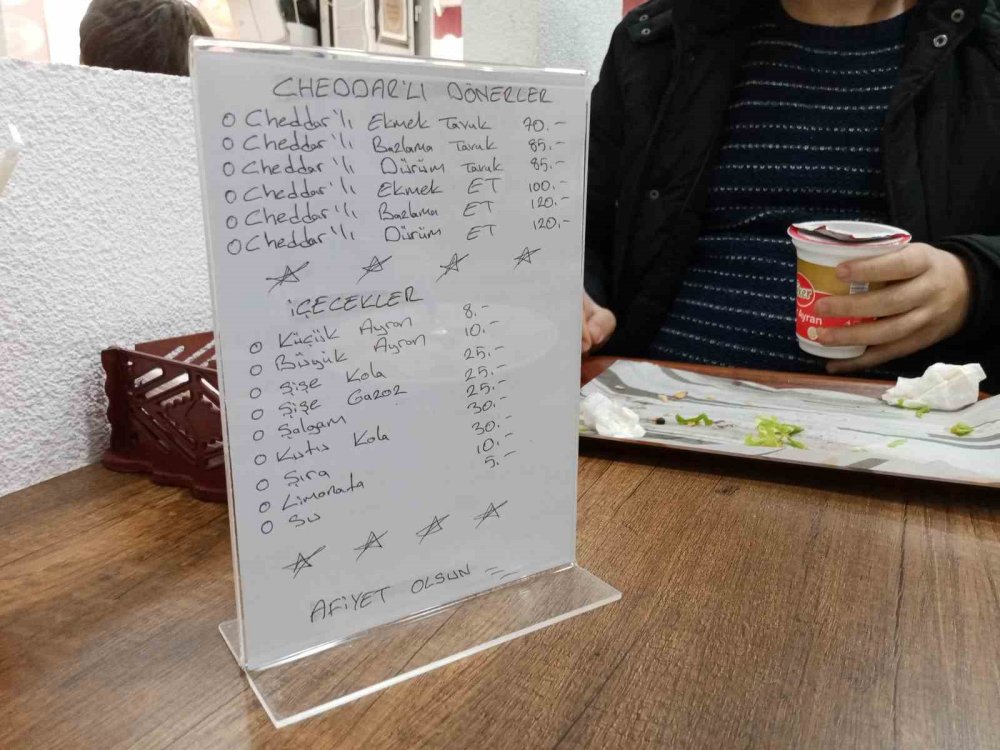 CHEDDAR'LI DÖNERLER
O Cheddar'lı Ekmek Tavuk 70.-
O Cheddar'lı Bazlama Tavuk 85.-
O Cheddar'lı Dürüm Tavuk 85.-
O Cheddar'lı Ekmek ET 100.-
O Cheddar'lı Bazlama ET 120.-
O Cheddar'lı Dürüm ET 120.-
İÇECEKLER
O Küçük Ayran 8.-
O Büyük Ayran 10.-
O Şişe Kola 25.-
O Şişe Gazoz 25.-
O Şalgam 25.-
O Kutu Kola 30.-
O Şıra 30.-
O Limonata 10.-
O Su 5.-
AFİYET OLSUN
Ayran